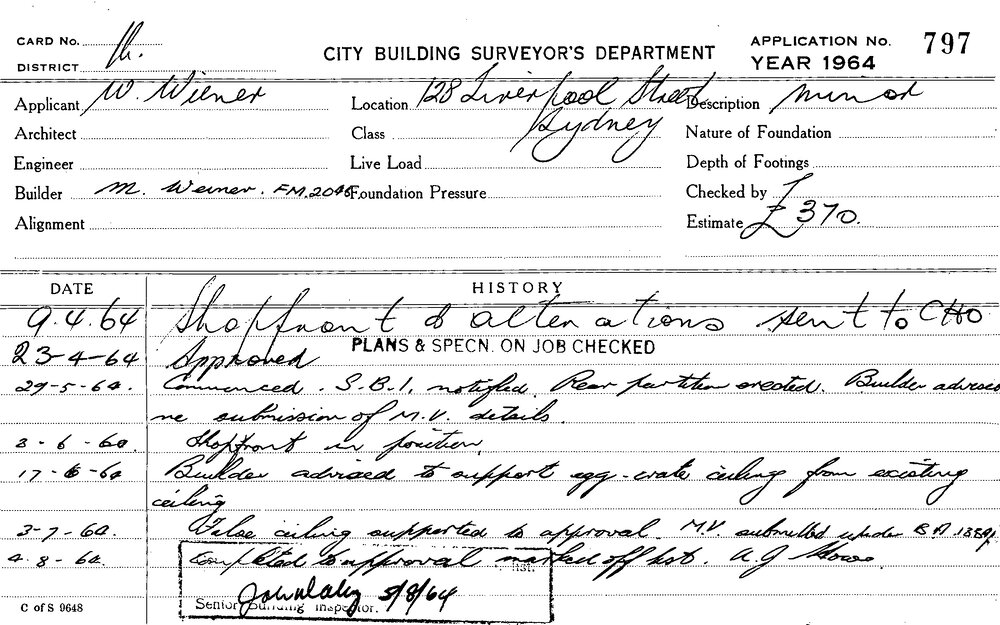 CARD No.
DISTRICT
CITY BUILDING SURVEYOR'S DEPARTMENT
APPLICATION No. 797
YEAR 1964
Applicant W. Wiener
Location 128 Liverpool Street
Sydney
Description minor
Architect
Class
Nature of Foundation
Engineer
Live Load
Depth of Footings
Builder M. Weiner. FM.2046
Foundation Pressure
Checked by
Alignment
Estimate £370.
DATE HISTORY
9.4.64 Shopfront & alterations sent to CHO
PLANS & SPECN. ON JOB CHECKED
23-4-64 Approved
29-5-64. Commenced. S.B.I. notified. Rear partition erected. Builder advised
re submission of M.V. details.
3-6-64. Shopfront in position.
17-6-64 Builder advised to support egg-crate ceiling from existing
ceiling
3-7-64. False ceiling supported to approval. M.V. submitted under B.A.
4-8-64. Completed to approval marked off list. A.J.
5/8/64
Senior Building Inspector.
C of S 9648